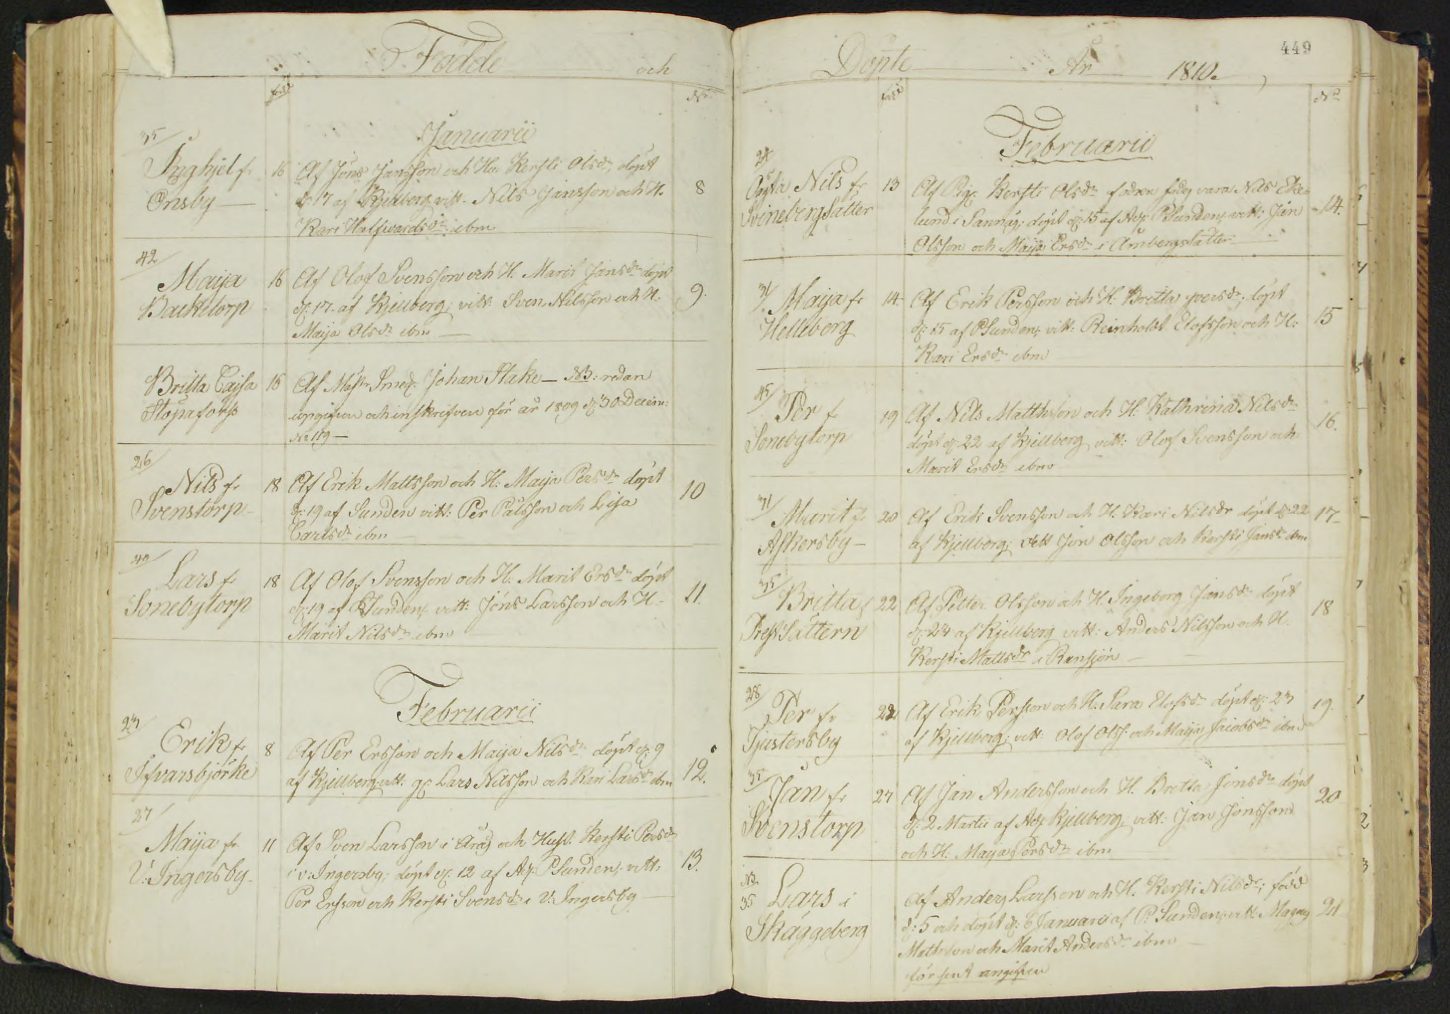 Födde och
född
No
Januarii
35
Inghjel fr
Önsby
16
Af Jöns Jansson och Hu. Kersti Olsdr, döpt
d. 17 af Kjellberg, vitt. Nils Jansson och H.
Kari Halfvardsdr ibm
8
42
Maija
Backetorp
16
Af Olof Svensson och H. Marit Jansdr döpt
d: 17. af Kjellberg, vitt. Sven Nilsson och H.
Maija Olsdr ibm
9.
Britta Cajsa
Stöpafors
16
Af Mästr Smed. Johan Stake — NB: redan
uppgifven och inskrifven för år 1809 d. 30 Decem:
No 119 —
26
Nils fr
Svenstorp
18
Af Erik Mattsson och H. Maija Persdr döpt
d: 19 af Sunden vitt. Per Pålsson och Lisa
Carlsdr ibm
10
Lars fr
Sonebytorp
18
Af Olof Svensson och H. Marit Ersdr döpt
d: 19 af P Sunden, vitt: Jöns Larsson och H.
Marit Nilsdr ibm
11.
Februarii
23
Erik fr
Ifvarsbjörke
8
Af Per Ersson och Maija Nilsdr döpt d. 9
af Kjellberg vitt. Lars Nilsson och Kari Larsdr ibm
12.
27
Maija fr
V. Ingersby
11
Af Sven Larsson i och Hust. Kersti Persdr
i v. Ingersby, döpt d. 12 af P Sunden, vitt:
Per Ersson och Kersti Svensdr i V. Ingersby
13.
449
Döpte År 1810.
född
No
Februarii
24
Oägta Nils fr
Svineberg Sätter
13
Af Kersti Olsdr fadren vara Nils Eke-
lund i Sanna, döpt d. 15 af P Sunden, vitt: Jan
Olsson och Maija Ersdr i Ambergsätter
14.
31
Maija fr
Helleberg
14
Af Erik Persson och H. Britta Persdr, döpt
d: 15 af P Sunden, vitt: Reinholdt Elofsson och H:
Kari Ersdr ibm
15
45
Per fr
Sonebytorp
19
Af Nils Matthsson och H. Kathrina Nilsdr
döpt d: 22 af Kjellberg vitt: Olof Svensson och
Marit Ersdr ibm
16.
31
Marit fr
Askersby
20
Af Erik Svensson och H. Kari Nilsdr döpt d. 22
af Kjellberg, vitt Jon Olsson och Kersti Jansdr ibm
17
35
Britta fr
Sättern
22
Af Petter Olsson och H. Ingeborg Jansdr döpt
d: 24 af Kjellberg vitt: Anders Nilsson och H.
Kersti Mattsdr i Ransjön
18
28
Per fr
Tjustersby
22
Af Erik Persson och H. Sara Elofsdr döpt d: 23
af Kjellberg vitt Olof Olss. och Maija Jacobsdr ibm
19.
35
Jan fr
Svenstorp
27
Af Jan Andersson och H. Britta Jonsdr döpt
d. 2 Martii af Kjellberg, vitt: Jan Jonsson
och H. Maija Persdr ibm
20
NB.
35
Lars i
Skäggeberg
Af Anders Larsson och H. Kersti Nilsdr; född
d: 5 och döpt d: 6 Januarii af P. Sunden, vitt Magnus
Mathsson och Marit Andersdr ibm
för sent angifven
21